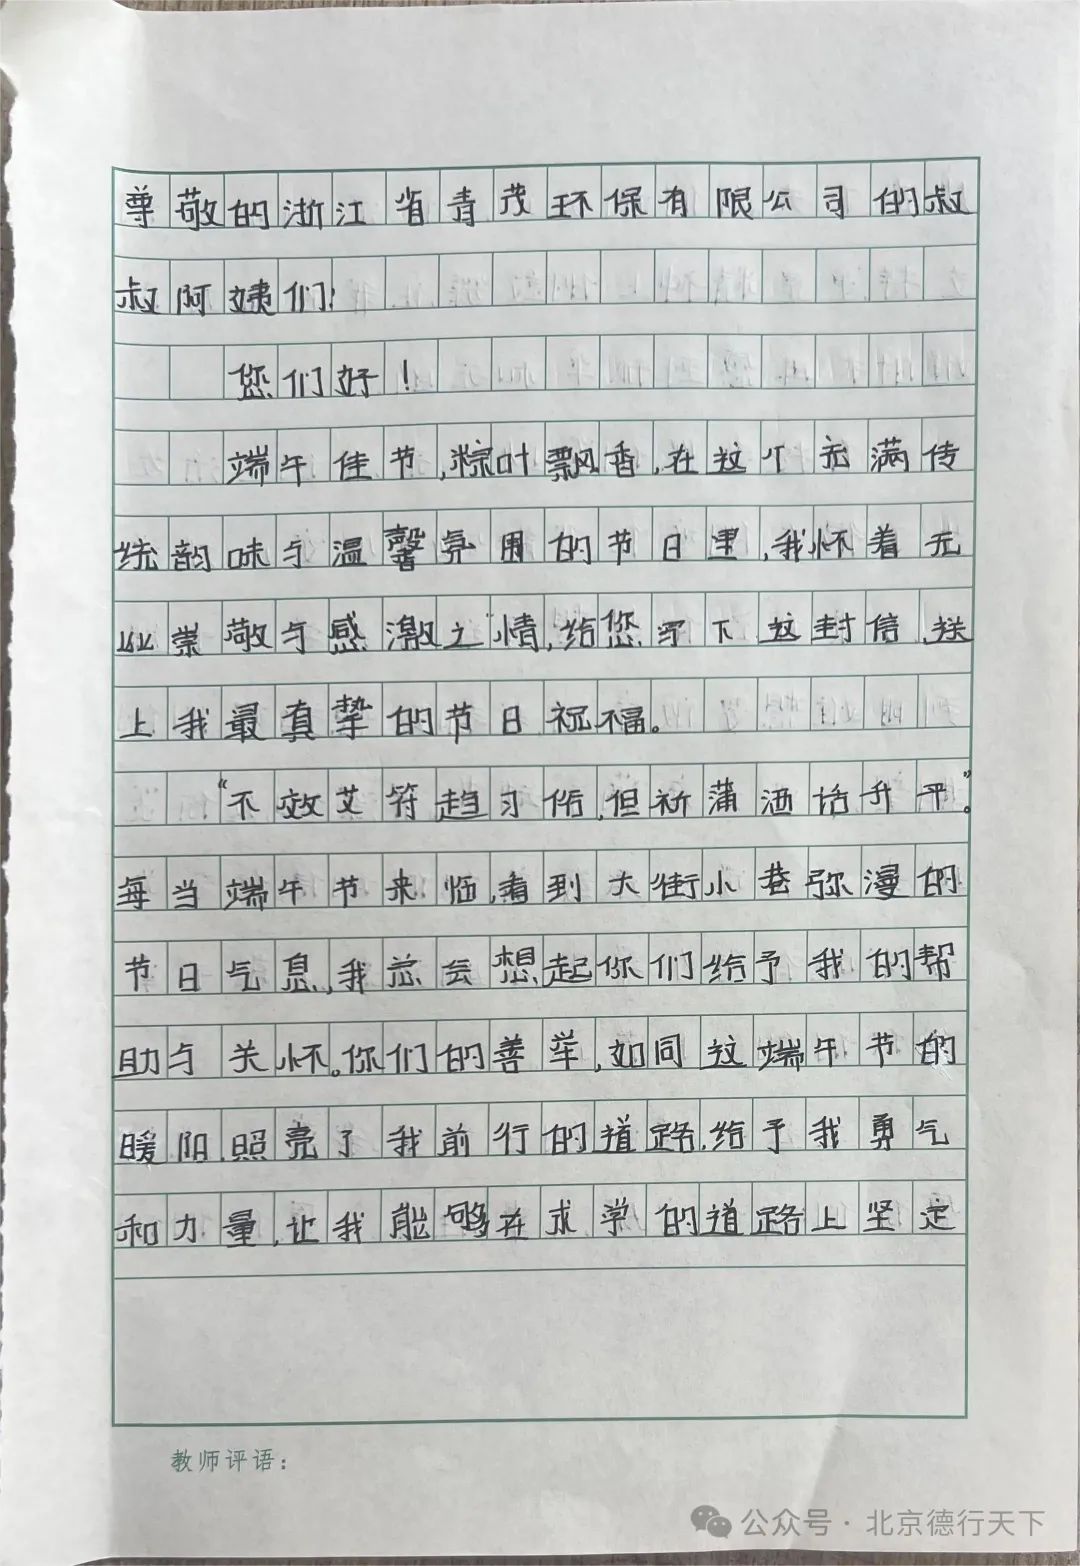 尊敬的浙江省青茂环保有限公司的叔
叔阿姨们:
您们好!
端午佳节,粽叶飘香,在这个充满传
统韵味与温馨氛围的节日里,我怀着无
比崇敬与感激之情,给您写下这封信,送
上我最真挚的节日祝福。
“不效艾符趋习俗,但祈蒲酒话升平。”
每当端午节来临,看到大街小巷弥漫的
节日气息,我总会想起你们给予我的帮
助与关怀。你们的善举,如同这端午节的
暖阳,照亮了我前行的道路,给予我勇气
和力量,让我能够在求学的道路上坚定
教师评语:
公众号·北京德行天下